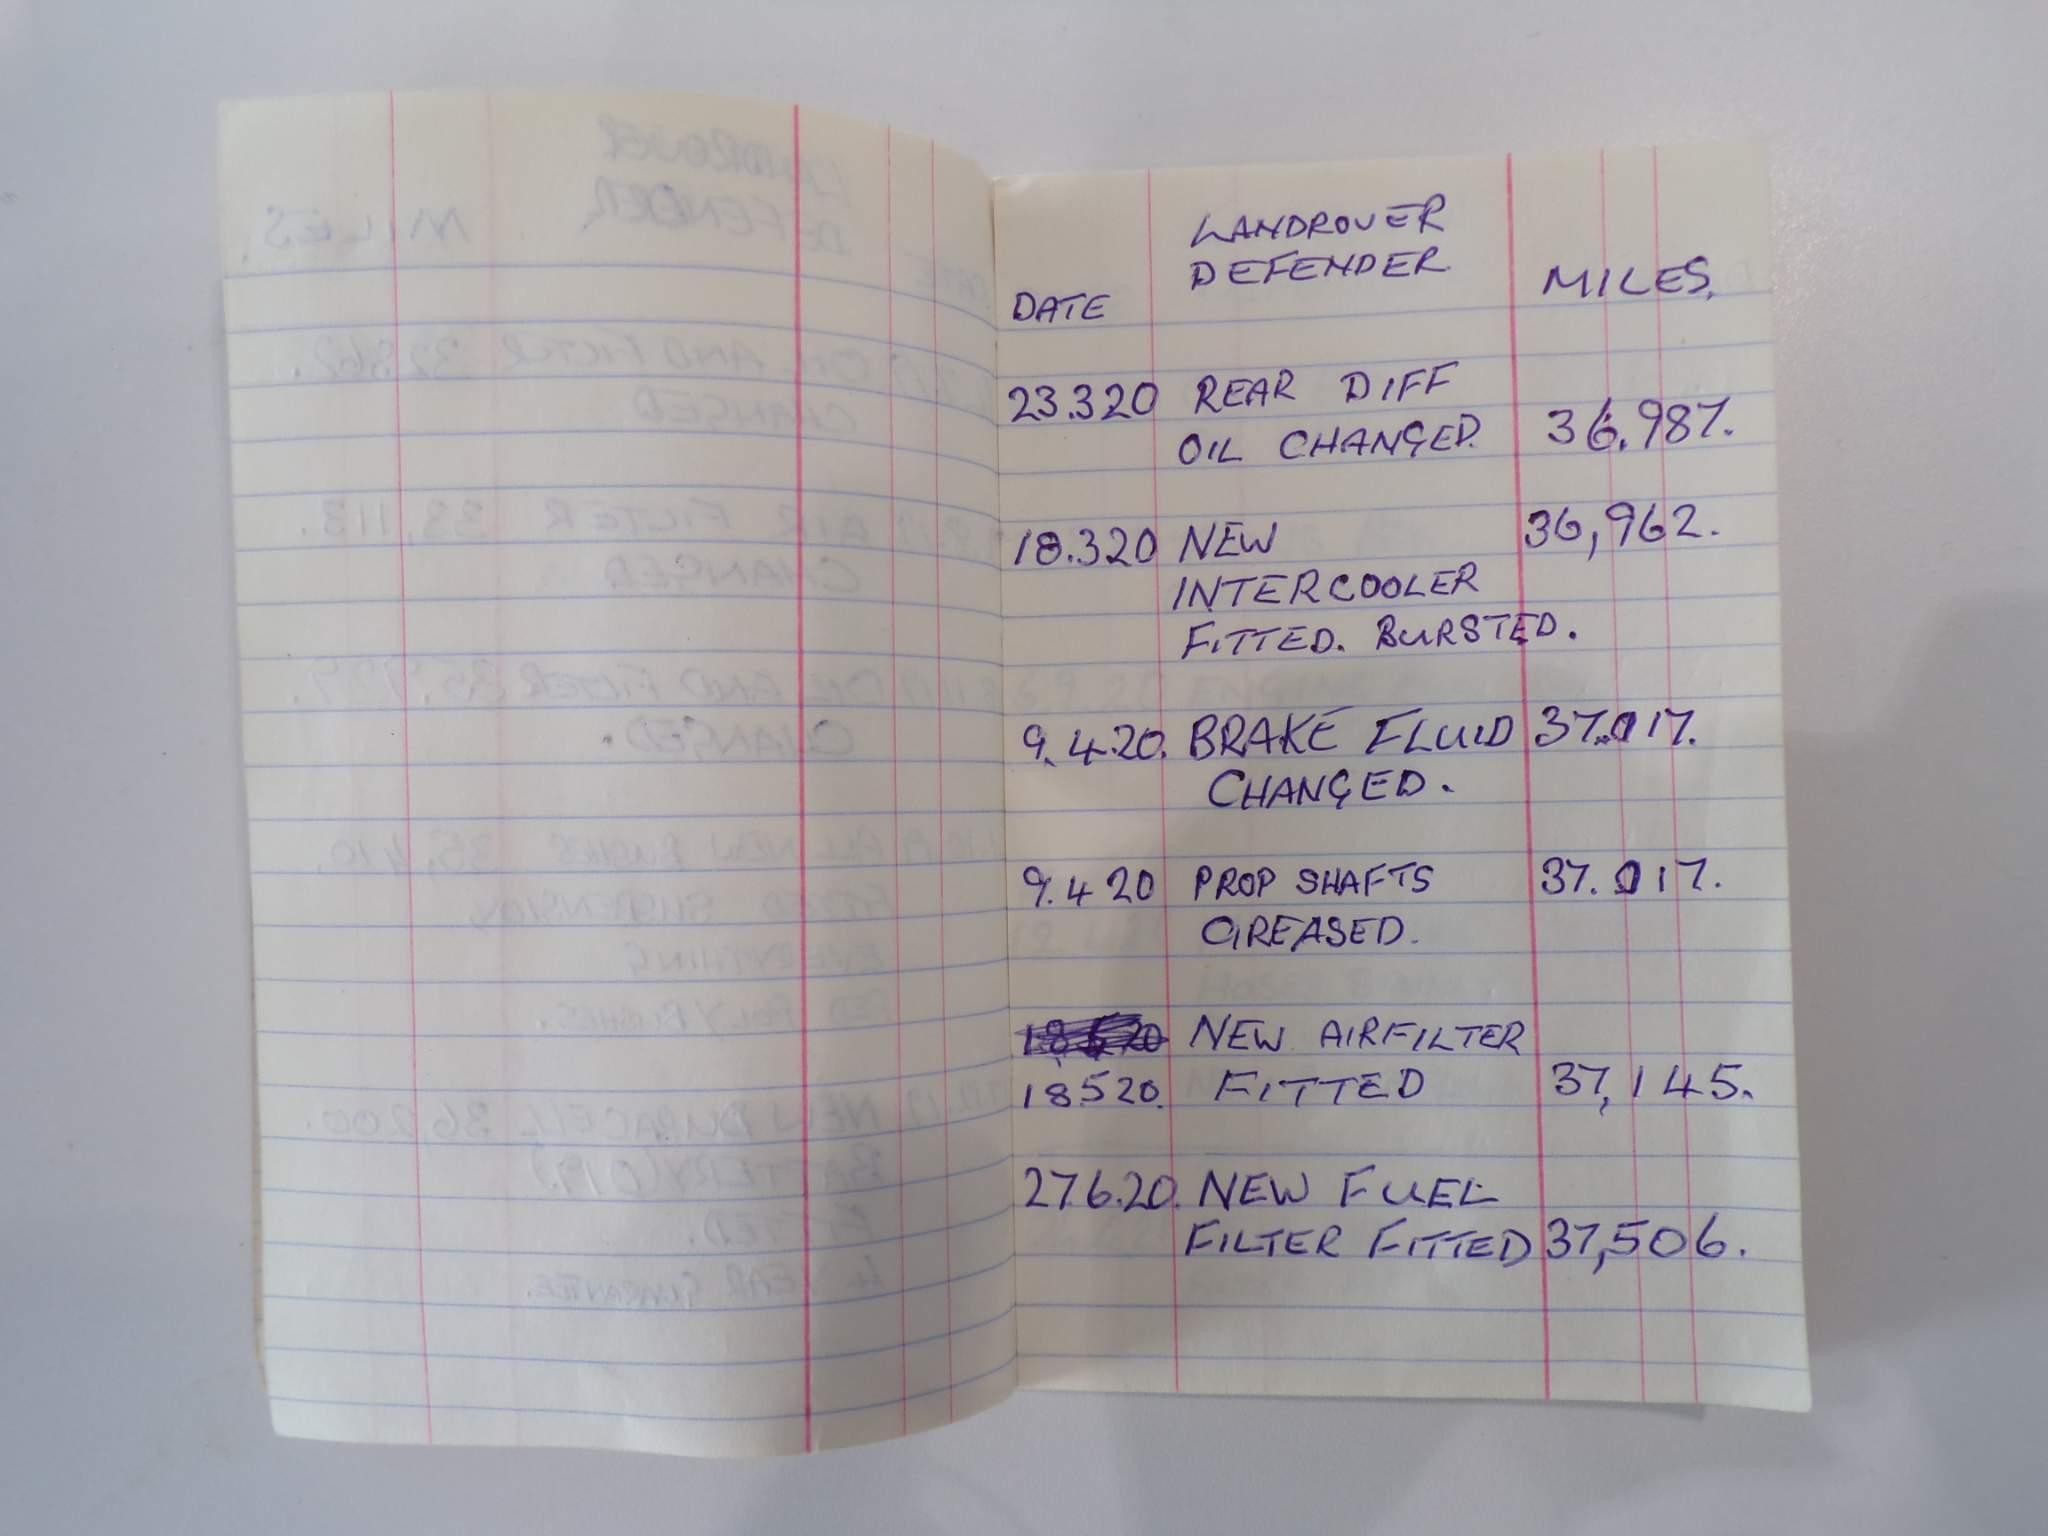 LANDROVER
DEFENDER
DATE MILES.
23.320 REAR DIFF
OIL CHANGED. 36.987.
18.320 NEW 36,962.
INTERCOOLER
FITTED. BURSTED.
9.4.20. BRAKE FLUID 37.017.
CHANGED.
9.4 20 PROP SHAFTS 37.017.
GREASED.
NEW AIRFILTER
18.5 20. FITTED 37,145.
27.6.20. NEW FUEL
FILTER FITTED 37,506.